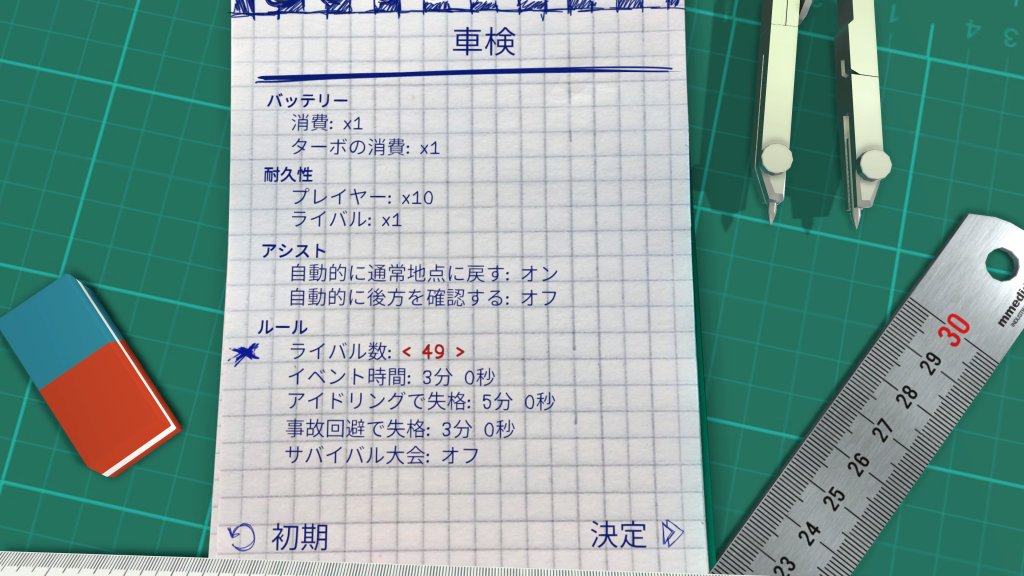 車検
バッテリー
消費: x1
ターボの消費: x1
耐久性
プレイヤー: x10
ライバル: x1
アシスト
自動的に通常地点に戻す: オン
自動的に後方を確認する: オフ
ルール
ライバル数: < 49 >
イベント時間: 3分 0秒
アイドリングで失格: 5分 0秒
事故回避で失格: 3分 0秒
サバイバル大会: オフ
初期
決定
30
29
28
27
26
25
24
23
1
4
3